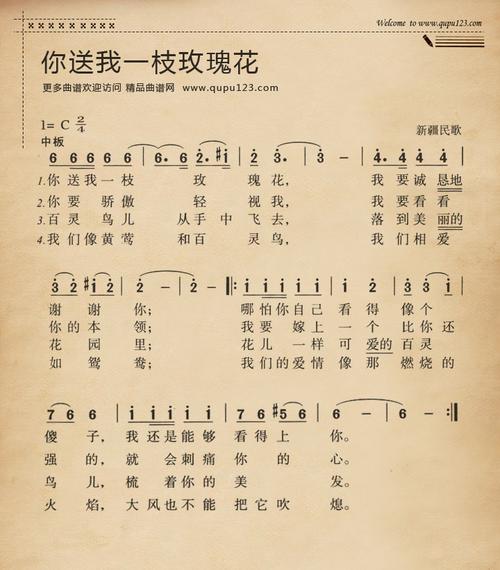 Welcome to www.qupu123.com
你送我一枝玫瑰花
更多曲谱欢迎访问 精品曲谱网 www.qupu123.com
1= C 2/4
中板
新疆民歌
6 6 6 6 6 | 6. 6 2. #1 | 2 3. | 3 – | 4. 4 4 4 |
1.你 送 我 一 枝 玫 瑰 花, 我 要 诚 恳地
2.你 要 骄 傲 轻 视 我, 我 要 看 看
3.百 灵 鸟 儿 从 手 中 飞 去, 落 到 美 丽的
4.我 们 像 黄 莺 和 百 灵 鸟, 我 们 相 爱
3 2 #1 2 | 2 – | 2 – |: 1 1 1 1 1 | 2 2 2 | 3 3 1 |
谢 谢 你; 哪 怕 你 自 己 看 得 像 个
你 的 本 领; 我 要 嫁 上 一 个 比 你 还
花 园 里; 花 儿 一 样 可 爱的 百 灵
如 鸳 鸯; 我 们 的 爱 情 像 那 燃 烧 的
7 6 6 | 1 1 1 1 1 | 7 6 #5 6 | 6 – | 6 – :|
傻 子, 我 还 是 能 够 看 得 上 你。
强 的, 就 会 刺 痛 你 的 心。
鸟 儿, 梳 着 你 的 美 发。
火 焰, 大 风 也 不 能 把 它 吹 熄。